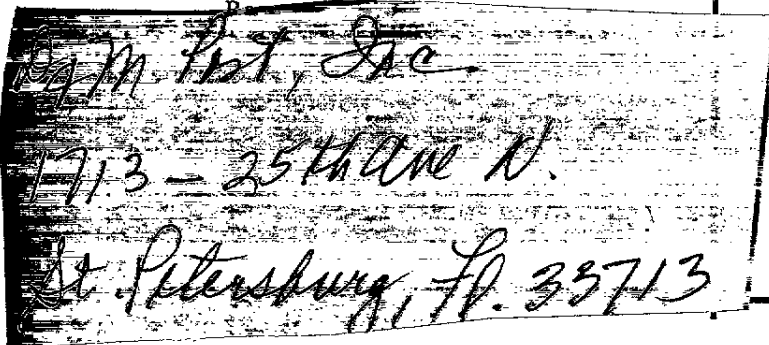 M. Post, Inc.
1713 - 25th Ave N.
St. Petersburg, Fl. 33713